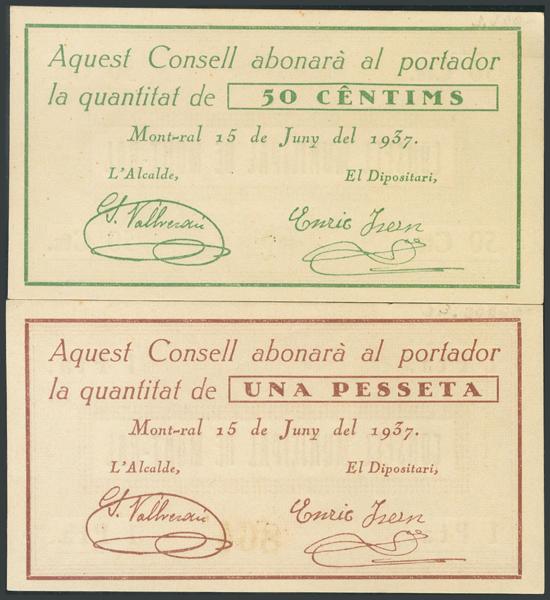 Aquest Consell abonarà al portador
la quantitat de 50 CÊNTIMS
Mont-ral 15 de Juny del 1937.
L'Alcalde, El Dipositari,
Enric Isern
Aquest Consell abonarà al portador
la quantitat de UNA PESSETA
Mont-ral 15 de Juny del 1937.
L'Alcalde, El Dipositari,
Enric Isern